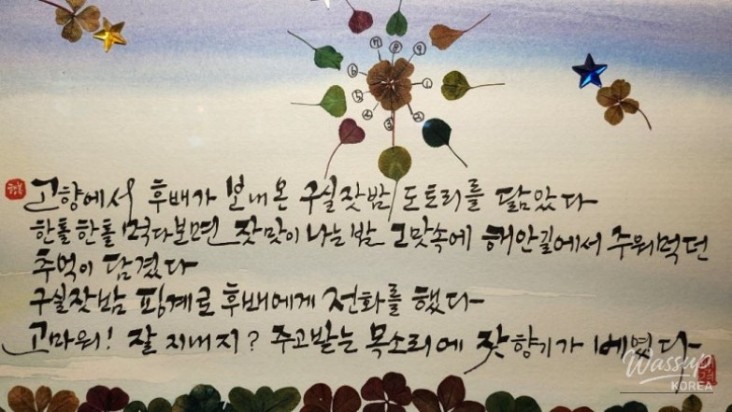 고향에서 후배가 보내온 구실잣밤 도토리를 닮았다
한톨 한톨 먹다보면 잣맛이 나는 밤 그맛속에 해안길에서 주워먹던
추억이 담겼다
구실잣밤 핑계로 후배에게 전화를 했다
고마워! 잘 지내지? 주고받는 목소리에 잣향기가 배였다
Wassup
KOREA